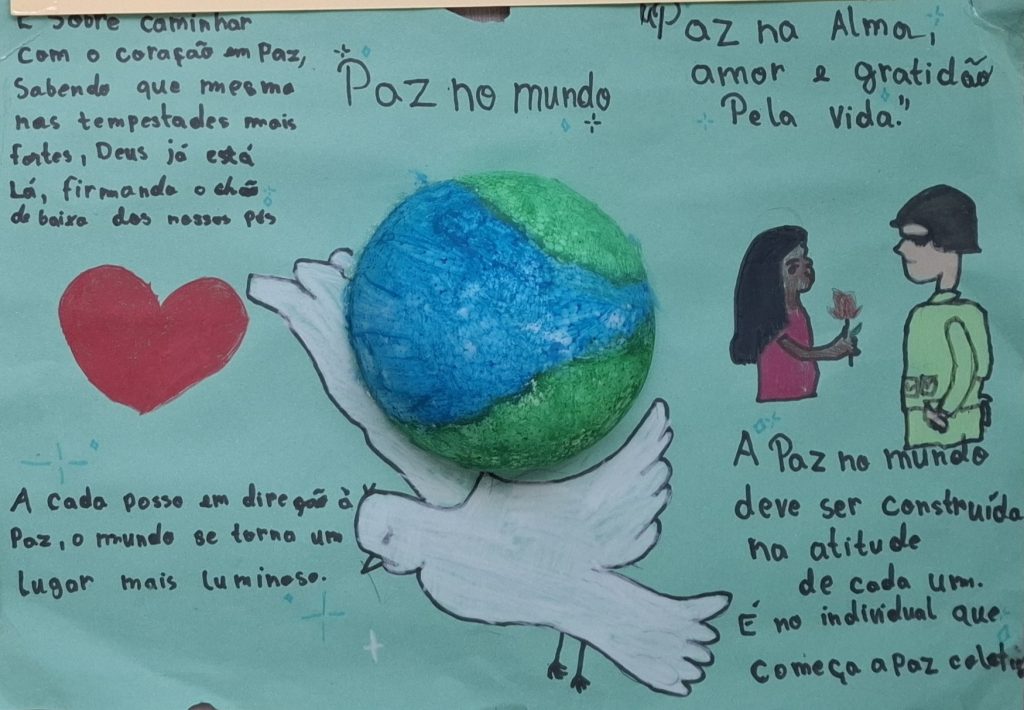 É sobre caminhar
com o coração em Paz,
Sabendo que mesmo
nas tempestades mais
fortes, Deus já está
Lá, firmando o chão
de baixo dos nossos pés
Paz no mundo
"Paz na Alma,
amor e gratidão
Pela vida."
A cada passo em direção à
Paz, o mundo se torna um
lugar mais luminoso.
A Paz no mundo
deve ser construída
na atitude
de cada um.
É no individual que
começa a paz